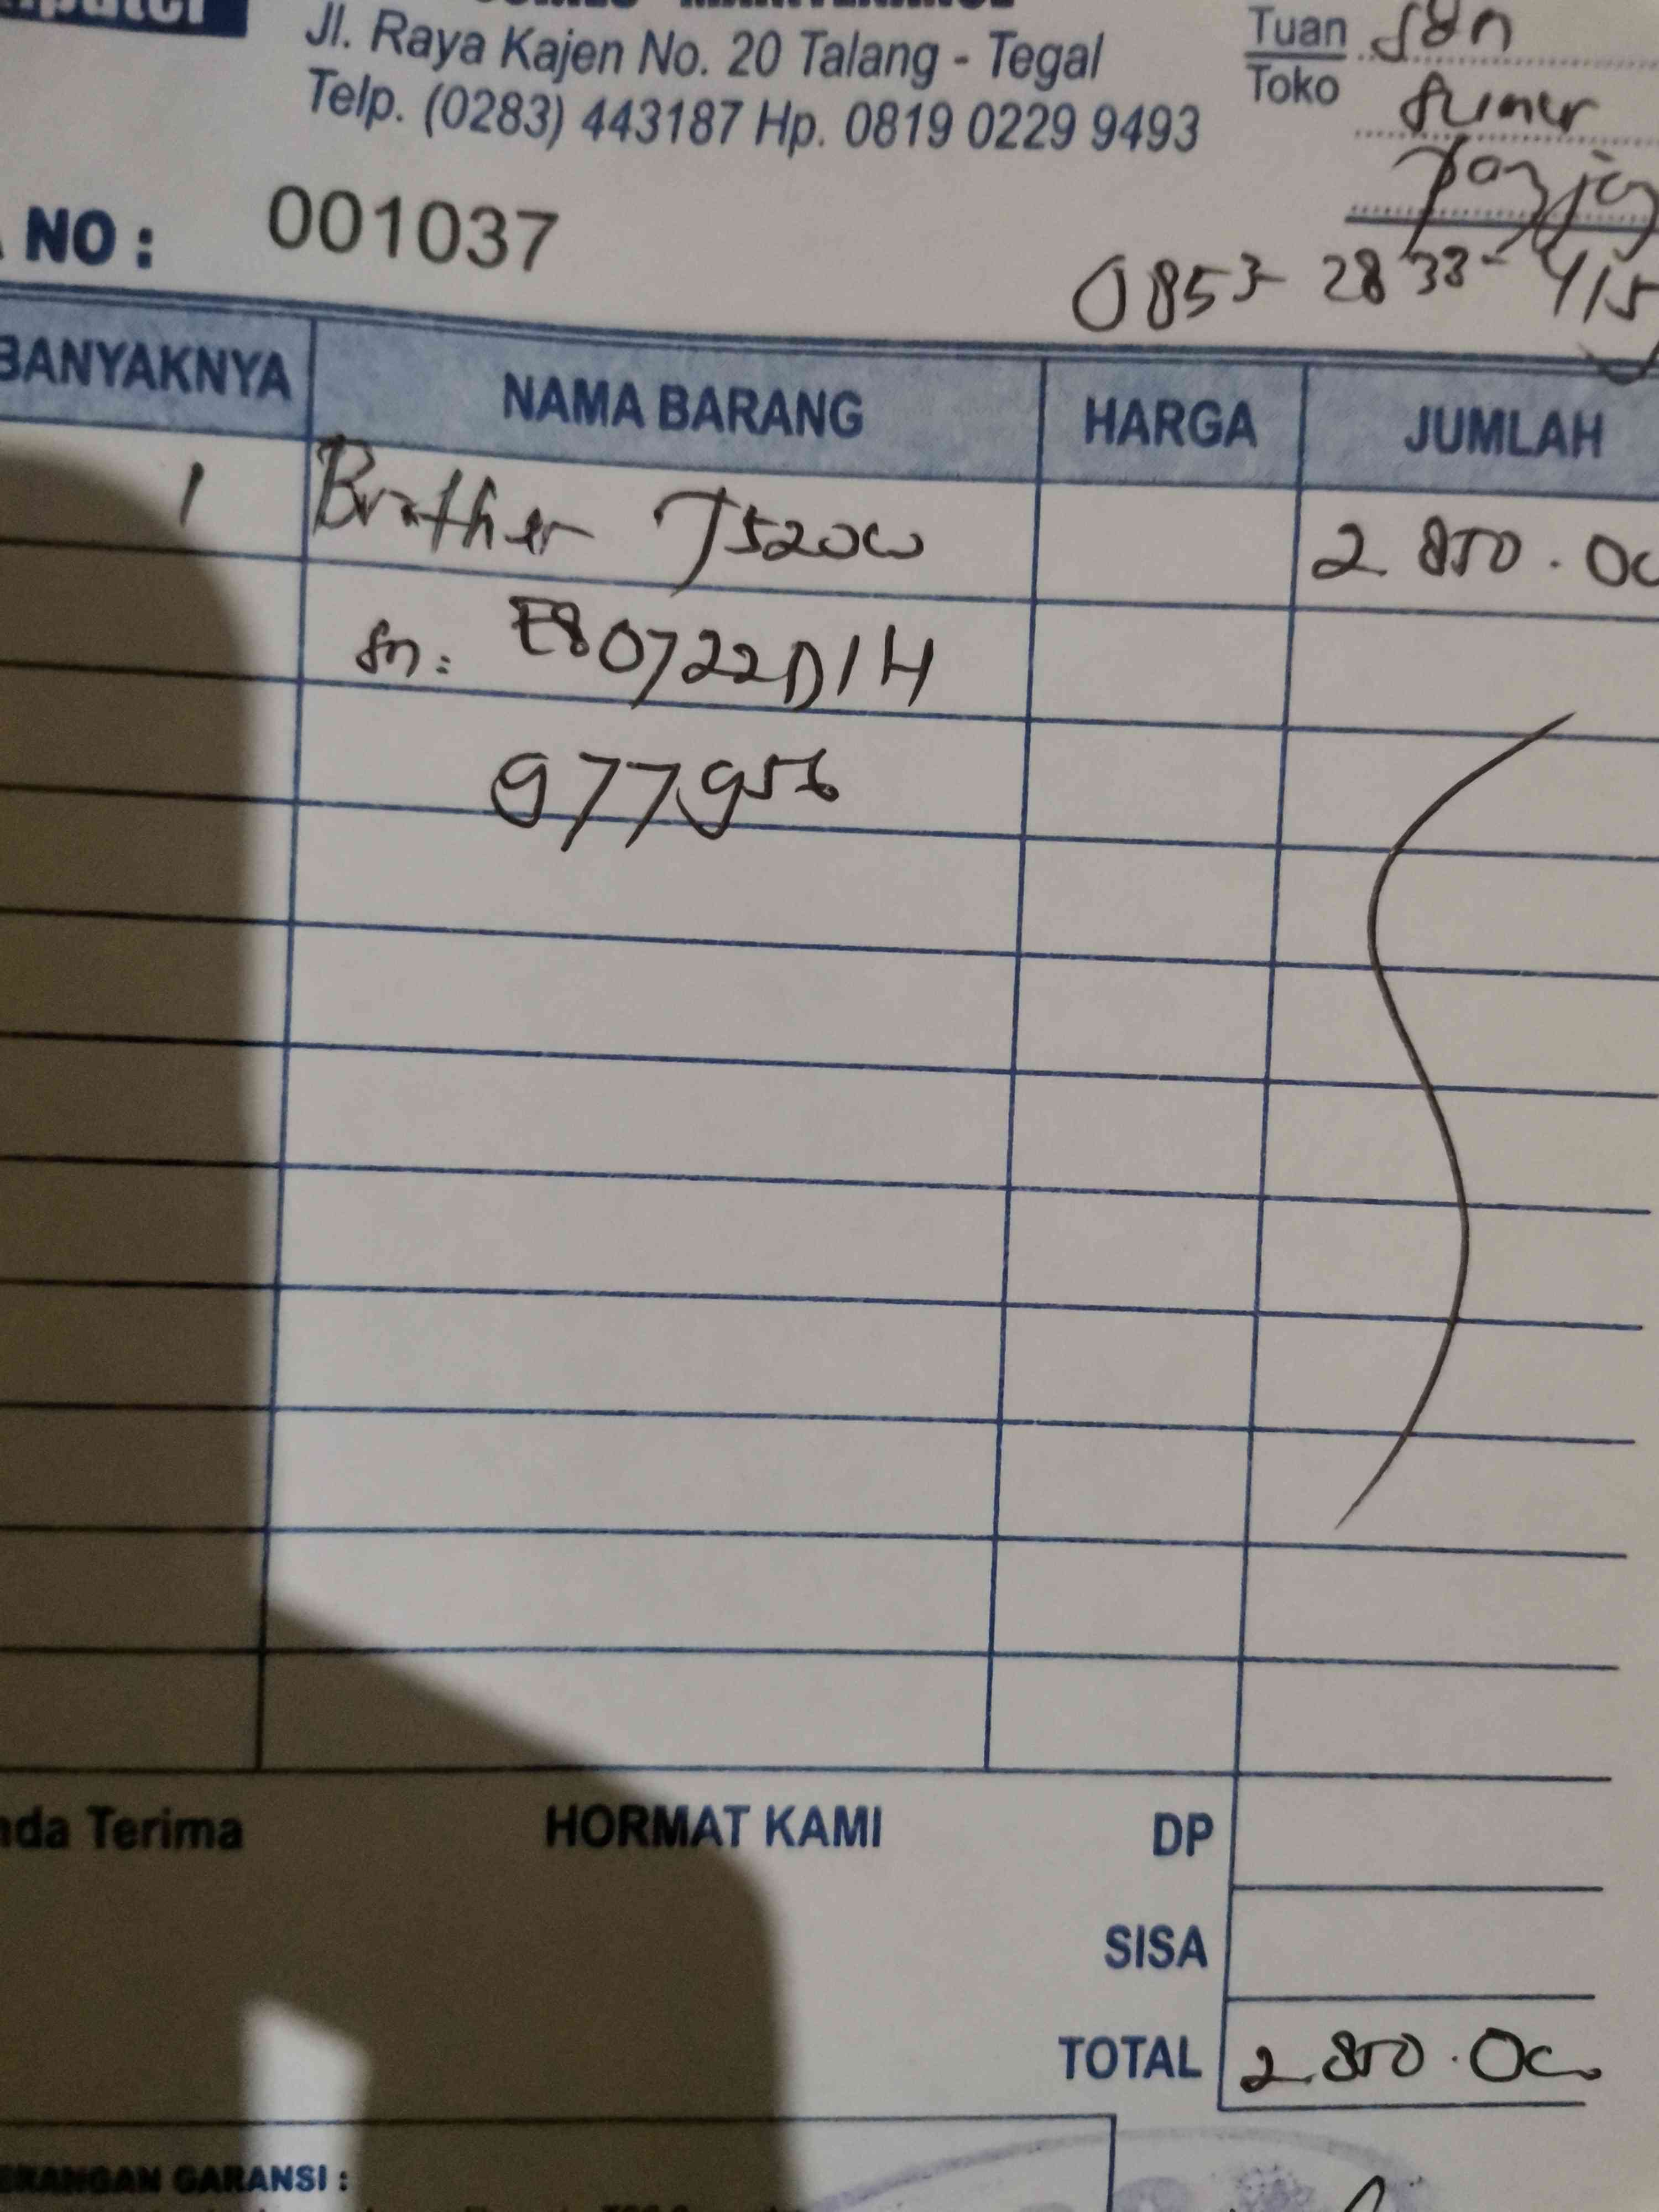 Jl. Raya Kajen No. 20 Talang - Tegal
Telp. (0283) 443187 Hp. 0819 0229 9493
Tuan SDN
Toko
NO : 001037
0853-2833-415
BANYAKNYA NAMA BARANG HARGA JUMLAH
1 Brother T520W 2.850.00
sn: E80722D1H
977956
nda Terima HORMAT KAMI DP
SISA
TOTAL 2.850.00
ERANGAN GARANSI :